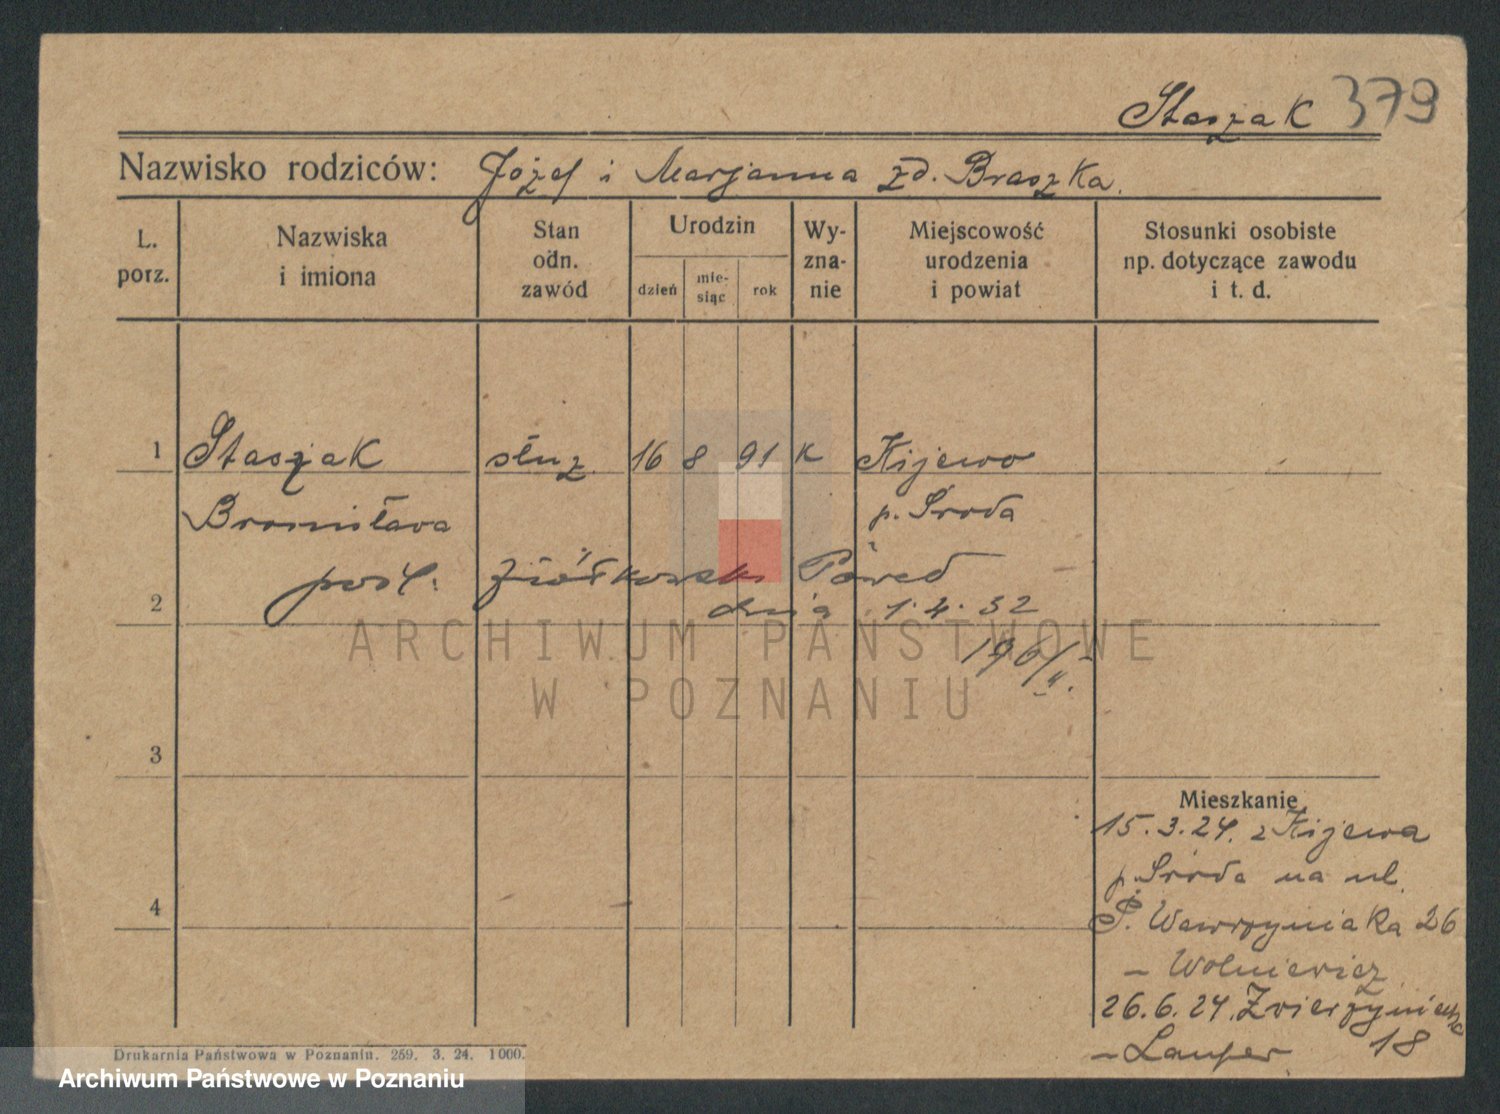 Staszak 379
Nazwisko rodziców: Józef i Marjanna zd. Braszka.
L. porz.
Nazwiska i imiona
Stan odn. zawód
Urodzin
dzień
mie-siąc
rok
Wy-zna-nie
Miejscowość urodzenia i powiat
Stosunki osobiste np. dotyczące zawodu i t. d.
1 Staszak służ. 16 8 91 K Kijewo
Bronisława p. Środa
pośl. Ziółkowski
2 dnia 1.4.32
196/II.
ARCHIWUM PAŃSTWOWE
W POZNANIU
3
Mieszkanie
15.3.24. z Kijewa
p. Środa na ul.
4
Ś. Wawrzyniaka 26
– Wolniewicz
26.6.24. Zwierzyniecka
18
Drukarnia Państwowa w Poznaniu. 259. 3. 24. 1000.
Archiwum Państwowe w Poznaniu